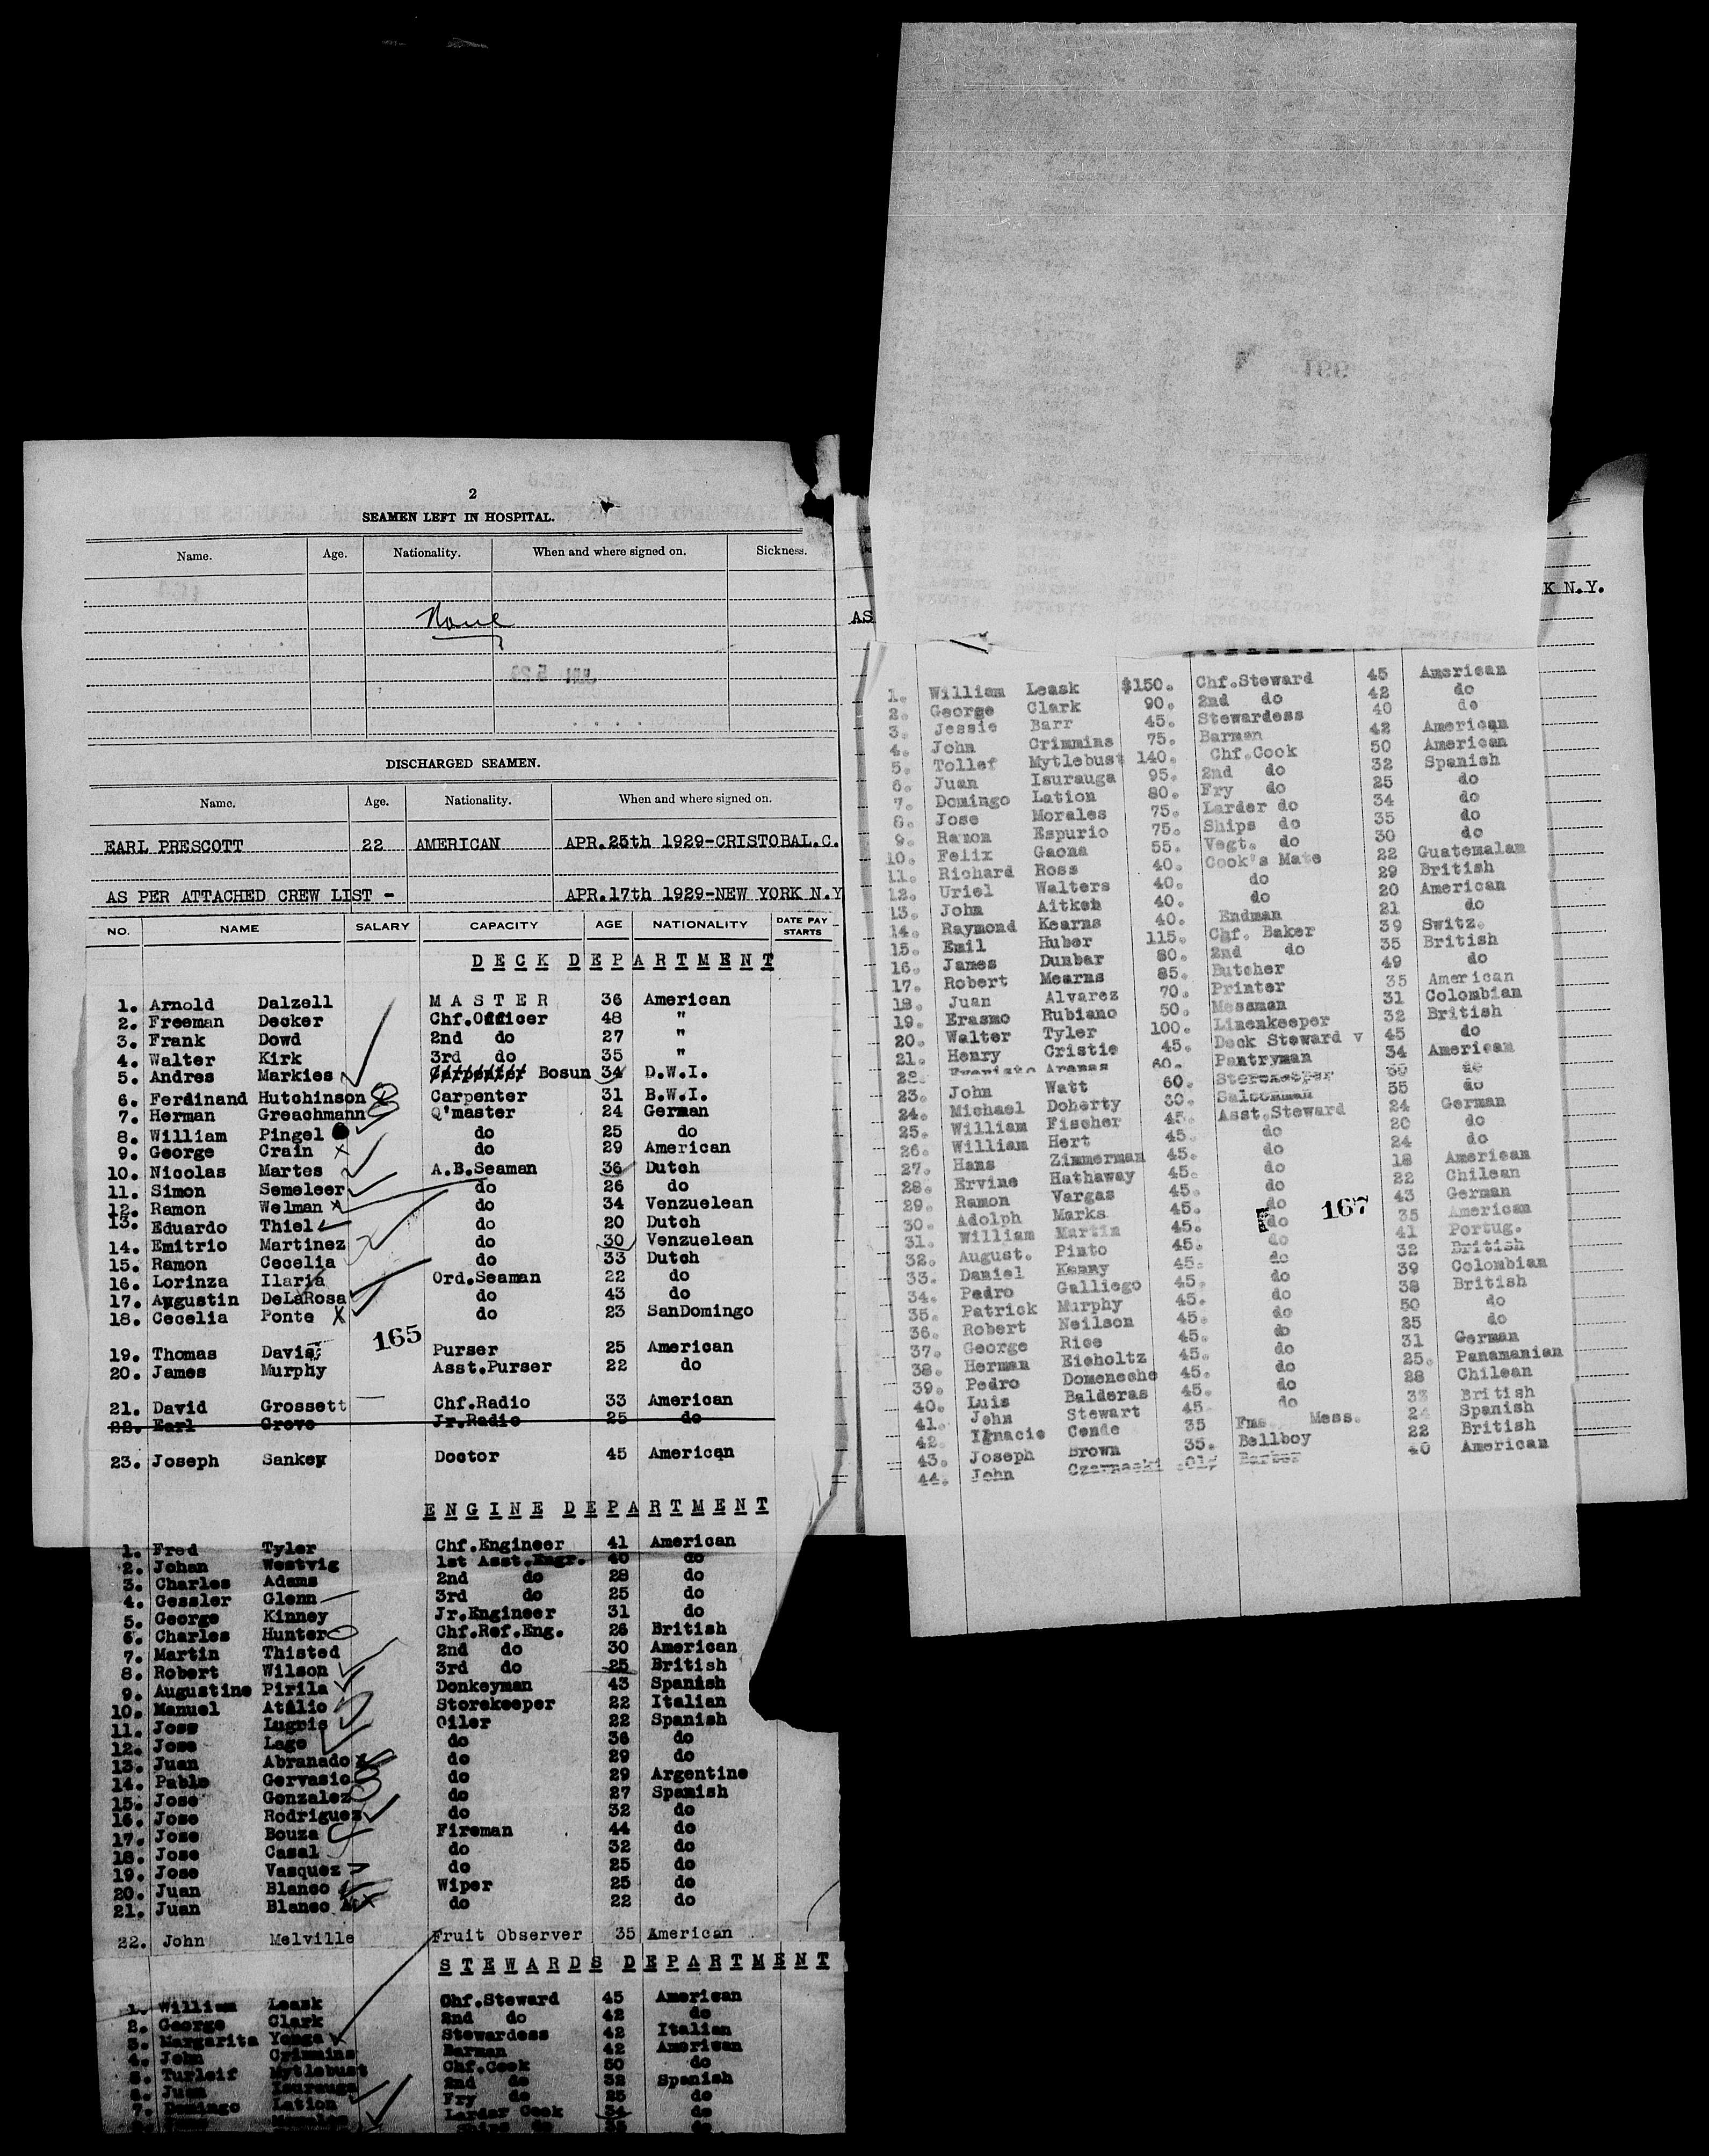 2
SEAMEN LEFT IN HOSPITAL.
Name. Age. Nationality. When and where signed on. Sickness.
None
DISCHARGED SEAMEN.
Name. Age. Nationality. When and where signed on.
EARL PRESCOTT 22 AMERICAN APR.25th 1929-CRISTOBAL.C.
AS PER ATTACHED CREW LIST - APR.17th 1929-NEW YORK N.Y
NO. NAME SALARY CAPACITY AGE NATIONALITY DATE PAY STARTS
DECK DEPARTMENT
1. Arnold Dalzell MASTER 36 American
2. Freeman Decker Chf.Officer 48 "
3. Frank Dowd 2nd do 27 "
4. Walter Kirk 3rd do 35 "
5. Andres Markies Carpenter Bosun 34 D.W.I.
6. Ferdinand Hutchinson Carpenter 31 B.W.I.
7. Herman Greachmann Q'master 24 German
8. William Pingel do 25 do
9. George Crain do 29 American
10. Nicolas Martes A.B.Seaman 36 Dutch
11. Simon Semeleer do 26 do
12. Ramon Welman do 34 Venzuelean
13. Eduardo Thiel do 20 Dutch
14. Emitrio Martinez do 30 Venzuelean
15. Ramon Cecelia do 33 Dutch
16. Lorinza Ilaria Ord.Seaman 22 do
17. Augustin DeLaRosa do 43 do
18. Cecelia Ponte do 23 SanDomingo
165
19. Thomas Davis Purser 25 American
20. James Murphy Asst.Purser 22 do
21. David Grossett Chf.Radio 33 American
22. Earl Grove Jr.Radio 25 do
23. Joseph Sankey Doctor 45 American
ENGINE DEPARTMENT
1. Fred Tyler Chf.Engineer 41 American
2. Johan Westvig 1st Asst.Engr. 40 do
3. Charles Adams 2nd do 28 do
4. Gessler Glenn 3rd do 25 do
5. George Kinney Jr.Engineer 31 do
6. Charles Hunter Chf.Ref.Eng. 26 British
7. Martin Thisted 2nd do 30 American
8. Robert Wilson 3rd do 25 British
9. Augustine Pirila Donkeyman 43 Spanish
10. Manuel Atalio Storekeeper 22 Italian
11. Jose Lugris Oiler 22 Spanish
12. Jose Lago do 36 do
13. Juan Abranado do 29 do
14. Pablo Gervasio do 29 Argentine
15. Jose Gonzalez do 27 Spanish
16. Jose Rodriguez do 32 do
17. Jose Bouza Fireman 44 do
18. Jose Casal do 32 do
19. Jose Vasquez do 25 do
20. Juan Blanco Wiper 25 do
21. Juan Blanco do 22 do
22. John Melville Fruit Observer 35 American
STEWARDS DEPARTMENT
1. William Leask Chf.Steward 45 American
2. George Clark 2nd do 42 do
3. Margarita Stewardess 42 Italian
4. John Crimmins Barman 42 American
5. Turleif Mytlebust Chf.Cook 50 do
6. Juan Isurauga 2nd do 32 Spanish
7. Domingo Lation Fry do 25 do
Larder Cook 34 do
K N.Y.
AS
1. William Leask $150. Chf.Steward 45 American
2. George Clark 90. 2nd do 42 do
3. Jessie Barr 45. Stewardess 40 do
4. John Crimmins 75. Barman 42 American
5. Tollef Mytlebust 140. Chf.Cook 50 American
6. Juan Isurauga 95. 2nd do 32 Spanish
7. Domingo Lation 80. Fry do 25 do
8. Jose Morales 75. Larder do 34 do
9. Ramon Espurio 75. Ships do 35 do
10. Felix Gaona 55. Vegt. do 30 do
11. Richard Ross 40. Cook's Mate 22 Guatemalam
12. Uriel Walters 40. do 29 British
13. John Aitken 40. do 20 American
14. Raymond Kearns 40. Endman 21 do
15. Emil Huber 115. Chf. Baker 39 Switz.
16. James Dunbar 80. 2nd do 35 British
17. Robert Mearns 85. Butcher 49 do
18. Juan Alvarez 70. Printer 35 American
19. Erasmo Rubiano 50. Messman 31 Colombian
20. Walter Tyler 100. Linenkeeper 32 British
21. Henry Cristie 45. Deck Steward v 45 do
22. Evaristo Arenas 60. Pantryman 34 American
23. John Watt 60. Storekeeper 30 do
24. Michael Doherty 30. Saloonman 55 do
25. William Fischer 45. Asst.Steward 24 German
26. William Hert 45. do 20 do
27. Hans Zimmerman 45. do 24 do
28. Ervine Hathaway 45. do 18 American
29. Ramon Vargas 45. do 22 Chilean
30. Adolph Marks 45. do 43 German
167
31. William Martin 45. do 35 American
32. August. Pinto 45. do 41 Portug.
33. Daniel Kenny 45. do 32 British
34. Pedro Galliego 45. do 39 Colombian
35. Patrick Murphy 45. do 38 British
36. Robert Neilson 45. do 50 do
37. George Rice 45. do 25 do
38. Herman Eicholtz 45. do 31 German
39. Pedro Domeneche 45. do 25. Panamanian
40. Luis Balderas 45. do 28 Chilean
41. John Stewart 45 do 33 British
42. Ignacio Conde 35 Fms. Mess. 24 Spanish
43. Joseph Brown 35. Bellboy 22 British
44. John Czarnacki .01 Barber 40 American